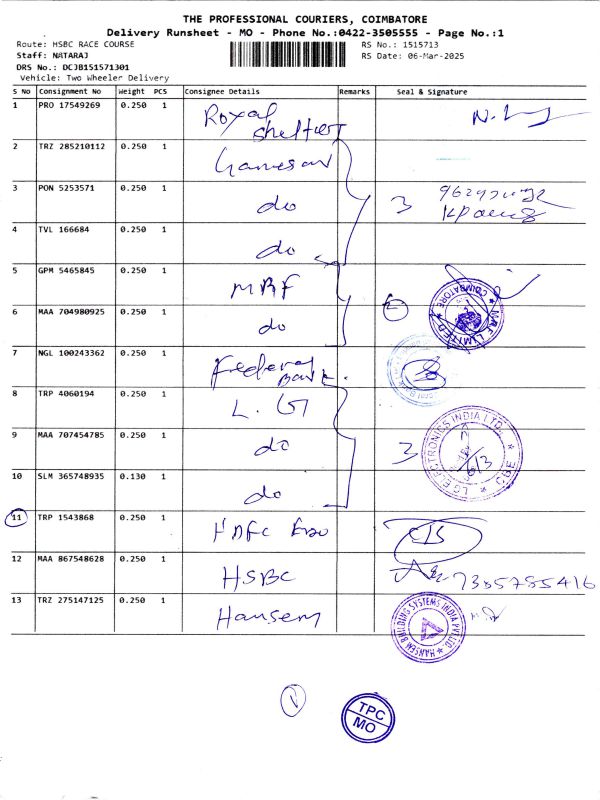 THE PROFESSIONAL COURIERS, COIMBATORE
Delivery Runsheet - MO - Phone No.:0422-3505555 - Page No.:1
Route: HSBC RACE COURSE
RS No.: 1515713
Staff: NATARAJ
RS Date: 06-Mar-2025
DRS No.: DCJB151571301
Vehicle: Two Wheeler Delivery
S No Consignment No Weight PCS Consignee Details Remarks Seal & Signature
1 PRO 17549269 0.250 1 Royal
Shelter
2 TRZ 285210112 0.250 1
3 PON 5253571 0.250 1 do 3
4 TVL 166684 0.250 1 do
5 GPM 5465845 0.250 1 MRF
6 MAA 704980925 0.250 1 do
MRF LIMITED ★ COIMBATORE ★
7 NGL 100243362 0.250 1 Federal
Bank
8 TRP 4060194 0.250 1 L.G
9 MAA 707454785 0.250 1 do 3
LG ELECTRONICS INDIA LTD. ★ CBE ★
6/3
10 SLM 365748935 0.130 1 do
11 TRP 1543868 0.250 1 HDFC
12 MAA 867548628 0.250 1 HSBC 7385785416
13 TRZ 275147125 0.250 1 Hansem
HANSEM BUILDING SYSTEMS INDIA PVT.LTD.
TPC
MO